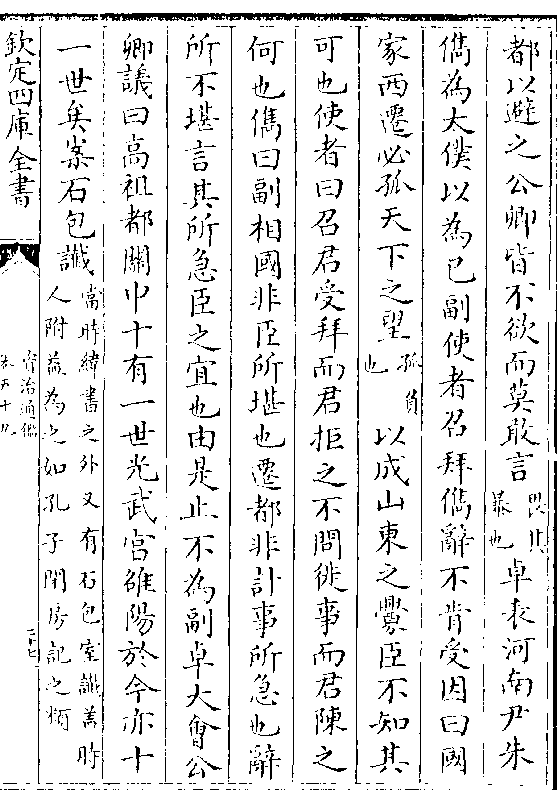 都以避之公卿皆不欲而莫敢言畏其暴也卓表河南尹朱
儁為太僕以為己副使者召拜儁辭不肯受因曰國
家西遷必孤天下之望孤負也以成山東之釁臣不知其
可也使者曰召君受拜而君拒之不問徙事而君陳之
何也儁曰副相國非臣所堪也遷都非計事所急也辭
所不堪言其所急臣之宜也由是止不為副卓大會公
卿議曰高祖都關中十有一世光武宫雒陽於今亦十
一世矣案石包讖當時緯書之外又有石包室讖蓋時人附益為之如孔子閉房記之類
欽定四庫全書
資治通鑑
卷五十九